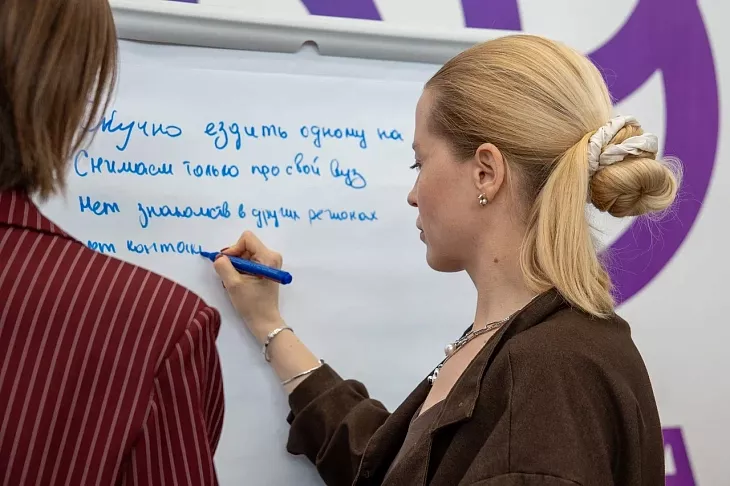 Скучно ездить одному на
Снимаем только про свой вуз
Нет знакомств в других регионах
нет контак
А